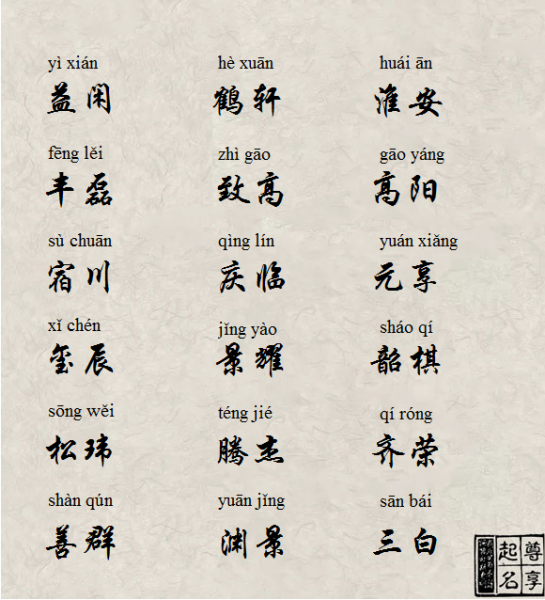 yì xián hè xuān huái ān
益闲 鹤轩 淮安
fēng lěi zhì gāo gāo yáng
丰磊 致高 高阳
sù chuān qìng lín yuán xiǎng
宿川 庆临 元享
xǐ chén jǐng yào sháo qí
玺辰 景耀 韶棋
sōng wěi téng jié qí róng
松玮 腾杰 齐荣
shàn qún yuān jǐng sān bái
善群 渊景 三白
尊享
起名